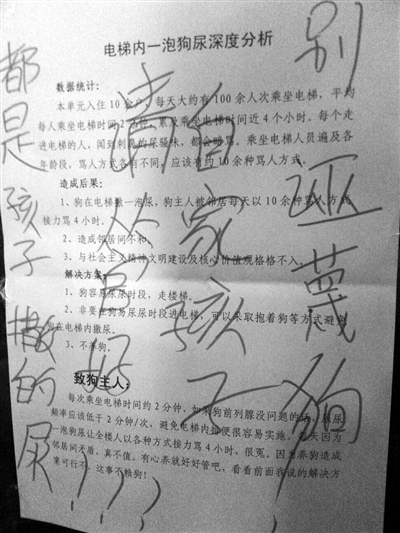 电梯内一泡狗尿深度分析
数据统计:
本单元入住10余户,每天大约有100余人次乘坐电梯,平均
每人乘坐电梯时间2分钟,累及乘坐电梯时间近4个小时。每个走
进电梯的人、闻到刺鼻的尿骚味,都会暗骂。乘坐电梯人员遍及各
年龄段、骂人方式各有不同,应该有约10余种骂人方式。
造成后果:
1、狗在电梯撒一泡尿,狗主人被邻居每天以10余种骂人方式
接力骂4小时.
2、造成邻居间不和。
3、与社会主义精神文明建设及核心价值观格格不入。
解决方案:
1、狗容易尿尿时段,走楼梯。
2、非要在狗易尿尿时段进电梯,可以采取抱着狗等方式避免
狗在电梯内撒尿。
3、不养狗。
致狗主人:
每次乘坐电梯时间约2分钟,如果狗前列腺没问题的话,尿尿
频率应该低于2分钟/次,避免电梯内拉便很容易实施。每天因为
一泡狗尿让全楼人以各种方式接力骂4小时,很冤。因为养狗造成
邻居间矛盾,真不值。有心养就好好管吧,看看前面我说的解决方
案可行不。这事不赖狗!
别
蔑狗
请
家孩子
都是孩子撒的尿!!!